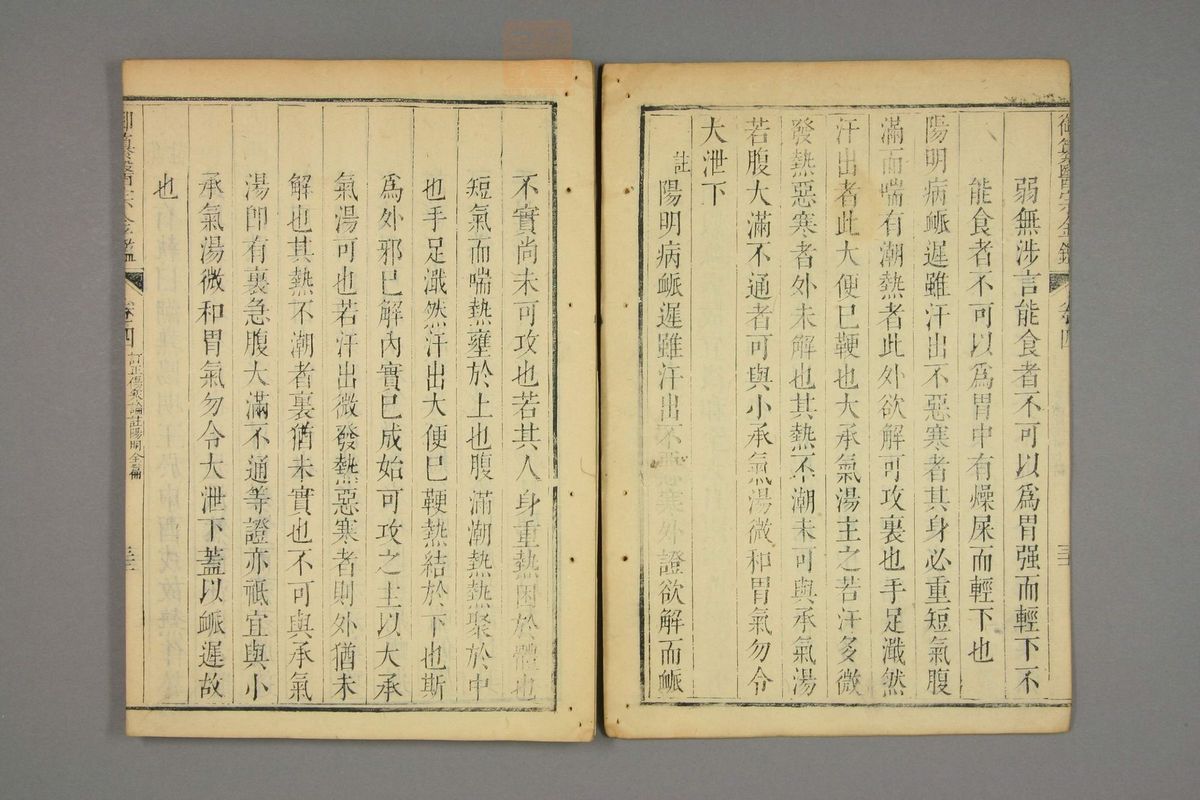 御纂醫宗金鑑 卷四 三二
弱無涉言能食者不可以爲胃强而輕下不
能食者不可以爲胃中有燥屎而輕下也
陽明病衇遲雖汗出不惡寒者其身必重短氣腹
滿而喘有潮熱者此外欲解可攻裏也手足濈然
汗出者此大便已鞕也大承氣湯主之若汗多微
發熱惡寒者外未解也其熱不潮未可與承氣湯
若腹大滿不通者可與小承氣湯微和胃氣勿令
大泄下
註陽明病衇遲雖汗出不惡寒外證欲解而衇
不實尚未可攻也若其人身重熱困於體也
短氣而喘熱壅於上也腹滿潮熱熱聚於中
也手足濈然汗出大便已鞕熱結於下也斯
爲外邪已解內實已成始可攻之主以大承
氣湯可也若汗出微發熱惡寒者則外猶未
解也其熱不潮者裏猶未實也不可與承氣
湯即有裏急腹大滿不通等證亦祇宜與小
承氣湯微和胃氣勿令大泄下蓋以衇遲故
也
御纂醫宗金鑑 卷四 訂正傷寒論註陽明全篇 三三